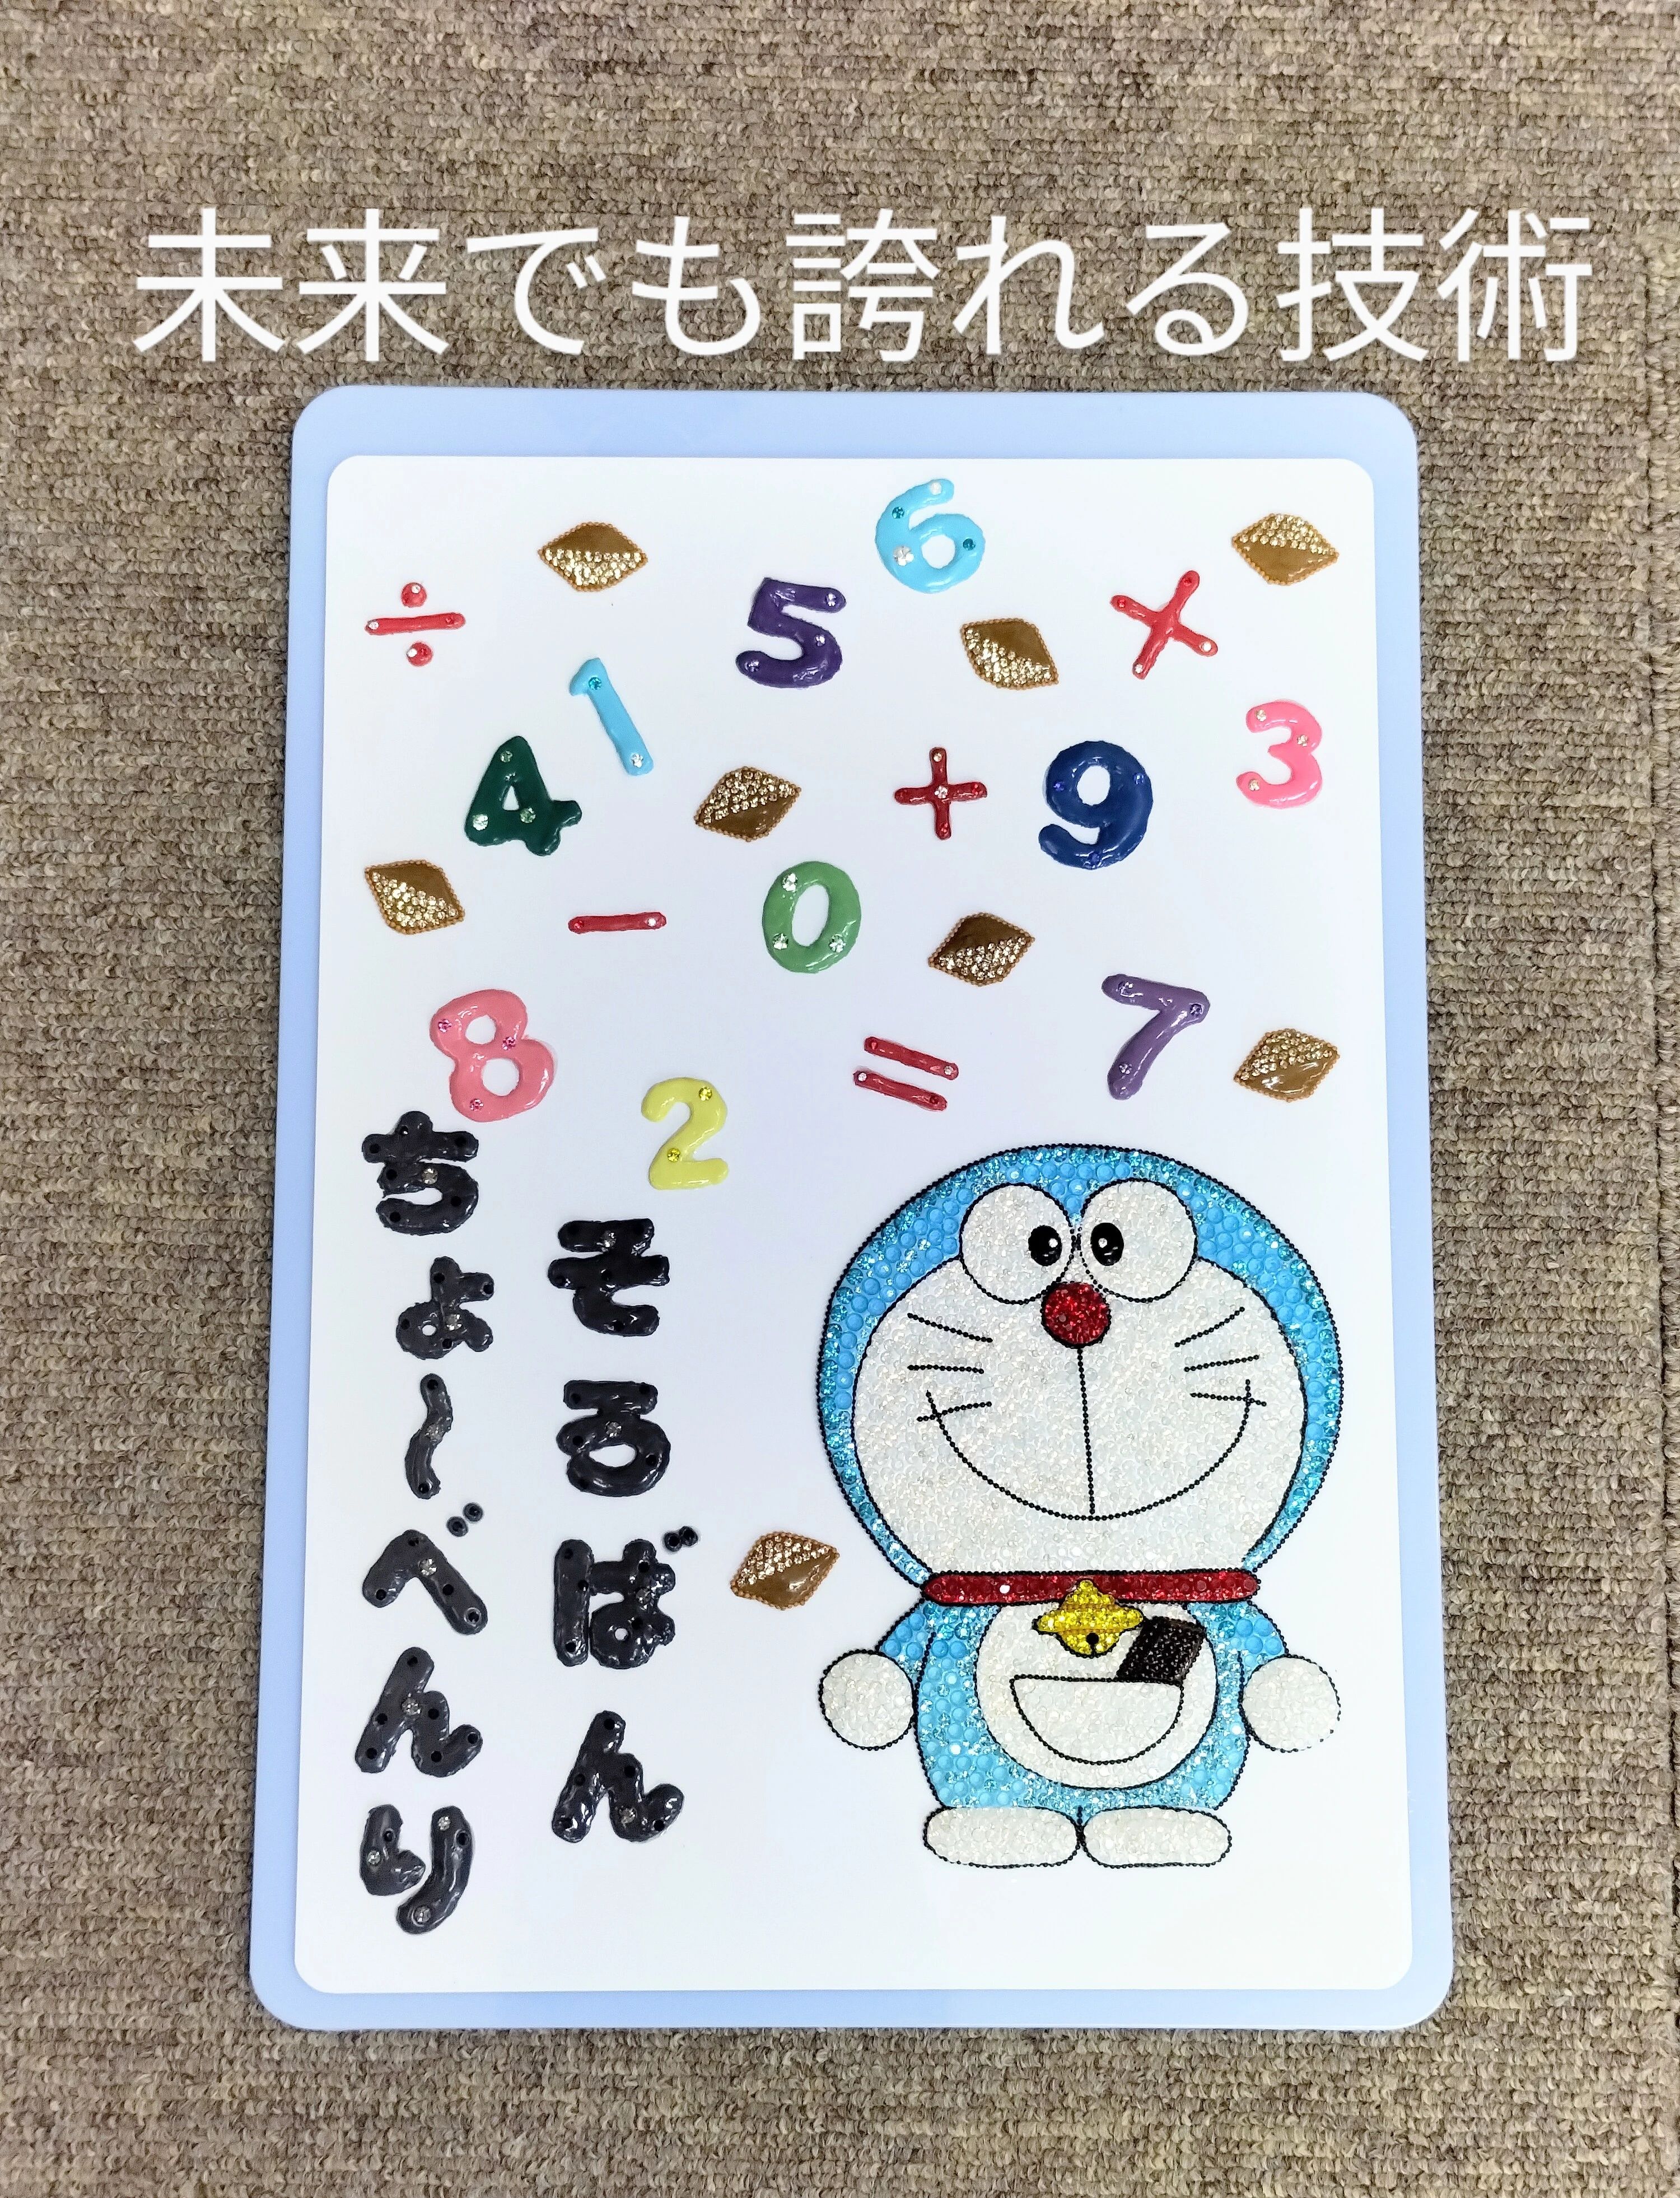 未来でも誇れる技術
6
÷
5
×
1
3
4
+
9
-
0
7
8
=
2
そろばん
ちょ～べんり